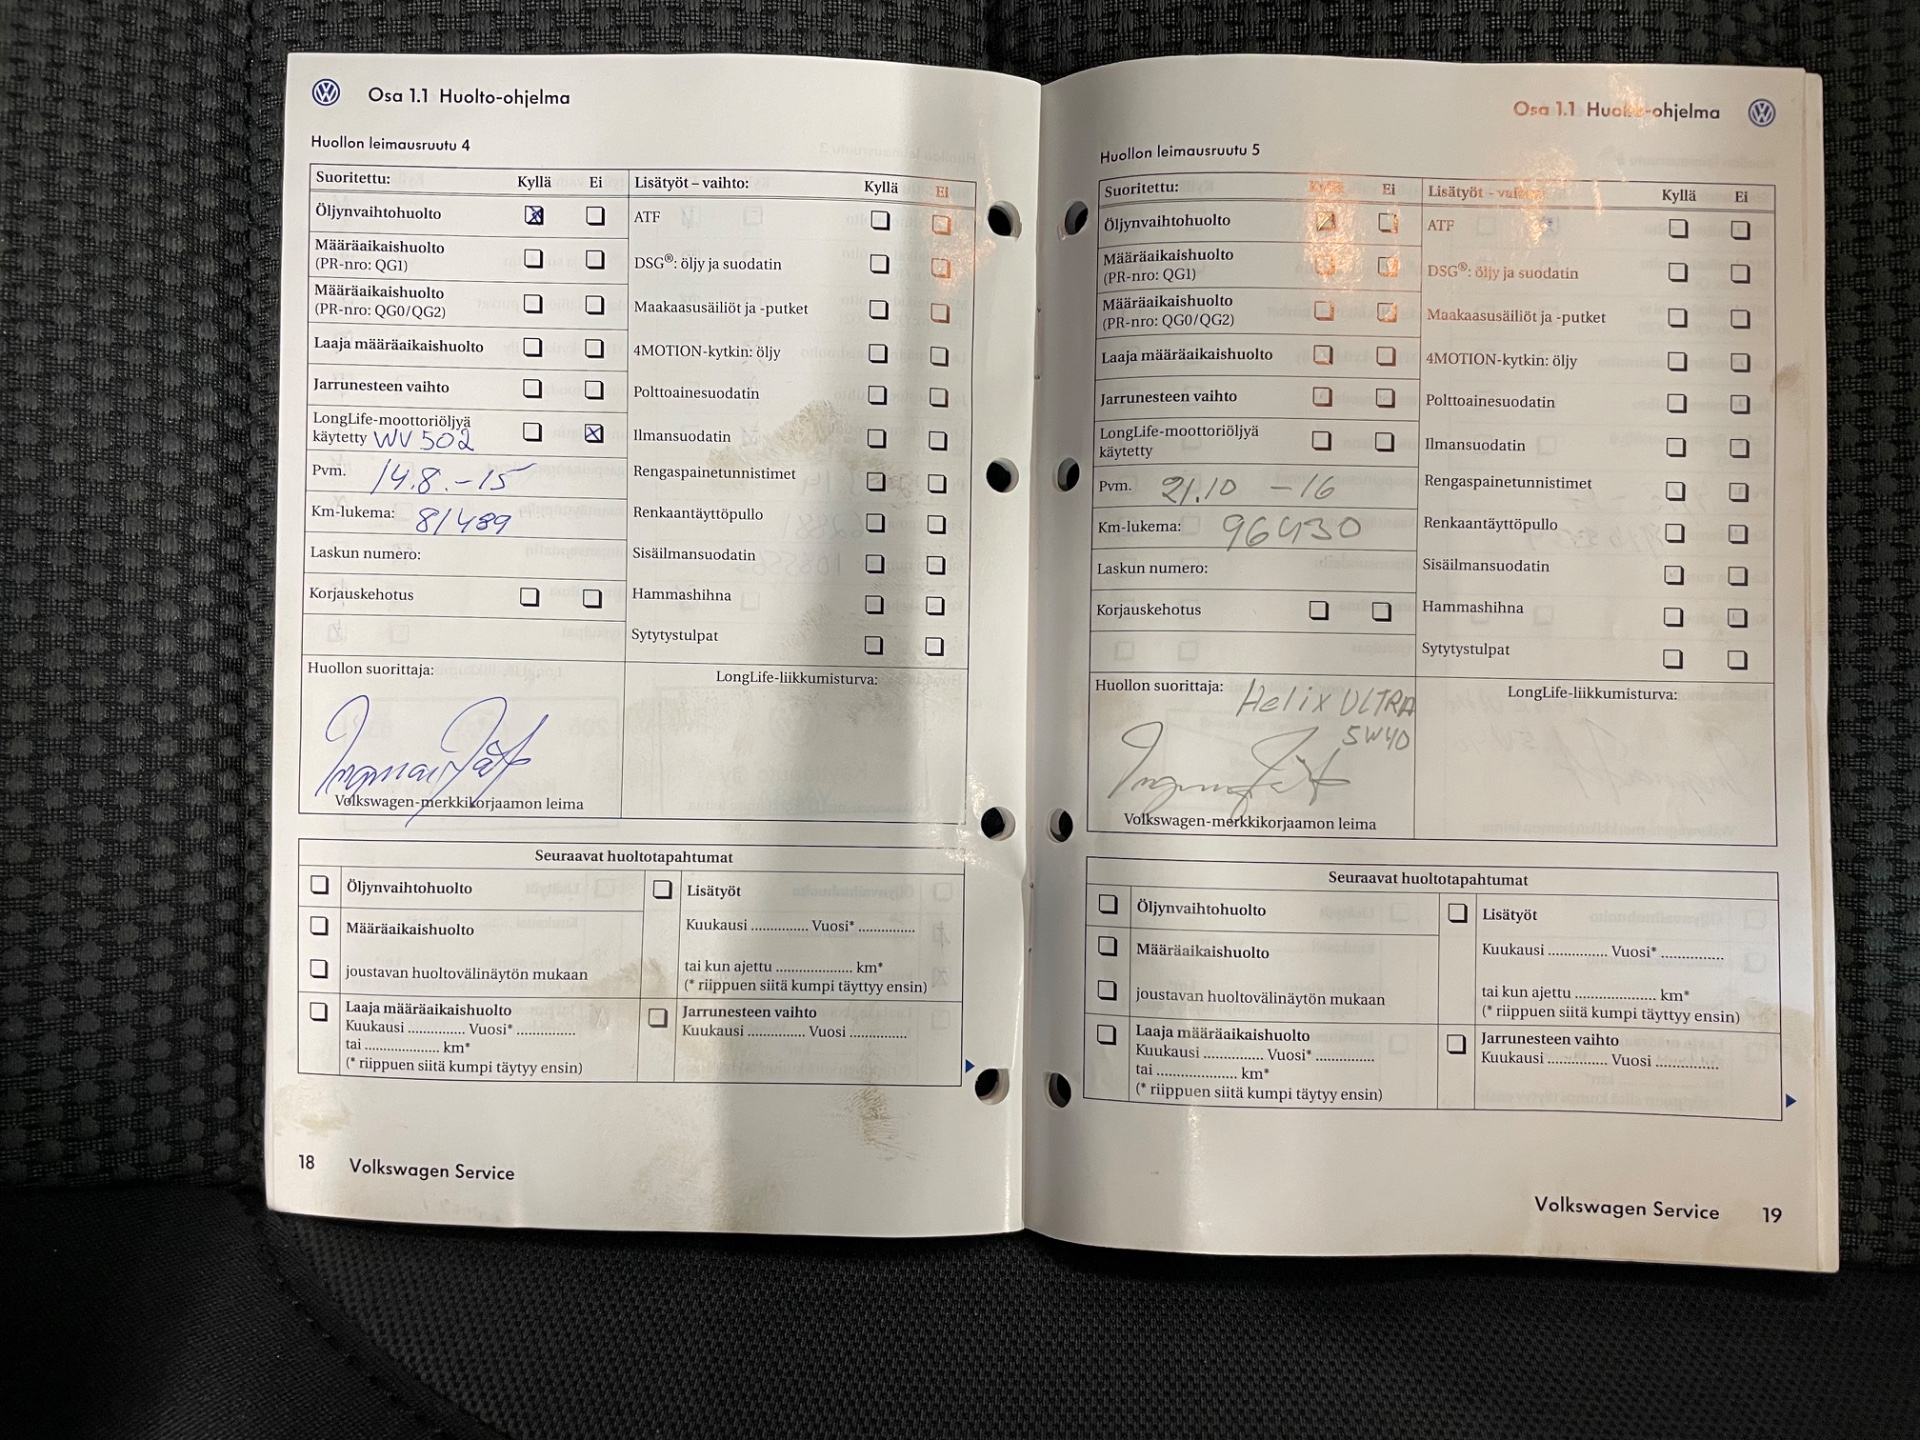 Osa 1.1 Huolto-ohjelma
Huollon leimausruutu 4
Suoritettu: Kyllä Ei Lisätyöt – vaihto: Kyllä Ei
Öljynvaihtohuolto ATF
Määräaikaishuolto
(PR-nro: QG1) DSG®: öljy ja suodatin
Määräaikaishuolto
(PR-nro: QG0/QG2) Maakaasusäiliöt ja -putket
Laaja määräaikaishuolto 4MOTION-kytkin: öljy
Jarrunesteen vaihto Polttoainesuodatin
LongLife-moottoriöljyä
käytetty WV 502 Ilmansuodatin
Pvm. 14.8.-15 Rengaspainetunnistimet
Km-lukema: 81489 Renkaantäyttöpullo
Laskun numero: Sisäilmansuodatin
Korjauskehotus Hammashihna
Sytytystulpat
Huollon suorittaja: LongLife-liikkumisturva:
Volkswagen-merkkikorjaamon leima
Seuraavat huoltotapahtumat
Öljynvaihtohuolto Lisätyöt
Määräaikaishuolto Kuukausi .............. Vuosi* ..............
joustavan huoltovälinäytön mukaan tai kun ajettu .................... km*
(* riippuen siitä kumpi täyttyy ensin)
Laaja määräaikaishuolto Jarrunesteen vaihto
Kuukausi .............. Vuosi* .............. Kuukausi .............. Vuosi ..............
tai .................... km*
(* riippuen siitä kumpi täytyy ensin)
18 Volkswagen Service
Osa 1.1 Huolto-ohjelma
Huollon leimausruutu 5
Suoritettu: Kyllä Ei Lisätyöt – vaihto: Kyllä Ei
Öljynvaihtohuolto ATF
Määräaikaishuolto
(PR-nro: QG1) DSG®: öljy ja suodatin
Määräaikaishuolto
(PR-nro: QG0/QG2) Maakaasusäiliöt ja -putket
Laaja määräaikaishuolto 4MOTION-kytkin: öljy
Jarrunesteen vaihto Polttoainesuodatin
LongLife-moottoriöljyä
käytetty Ilmansuodatin
Pvm. 21.10 -16 Rengaspainetunnistimet
Km-lukema: 96430 Renkaantäyttöpullo
Laskun numero: Sisäilmansuodatin
Korjauskehotus Hammashihna
Sytytystulpat
Huollon suorittaja: Helix ULTRA LongLife-liikkumisturva:
5W40
Volkswagen-merkkikorjaamon leima
Seuraavat huoltotapahtumat
Öljynvaihtohuolto Lisätyöt
Määräaikaishuolto Kuukausi .............. Vuosi* ..............
joustavan huoltovälinäytön mukaan tai kun ajettu .................... km*
(* riippuen siitä kumpi täyttyy ensin)
Laaja määräaikaishuolto Jarrunesteen vaihto
Kuukausi .............. Vuosi* .............. Kuukausi .............. Vuosi ..............
tai .................... km*
(* riippuen siitä kumpi täytyy ensin)
Volkswagen Service 19